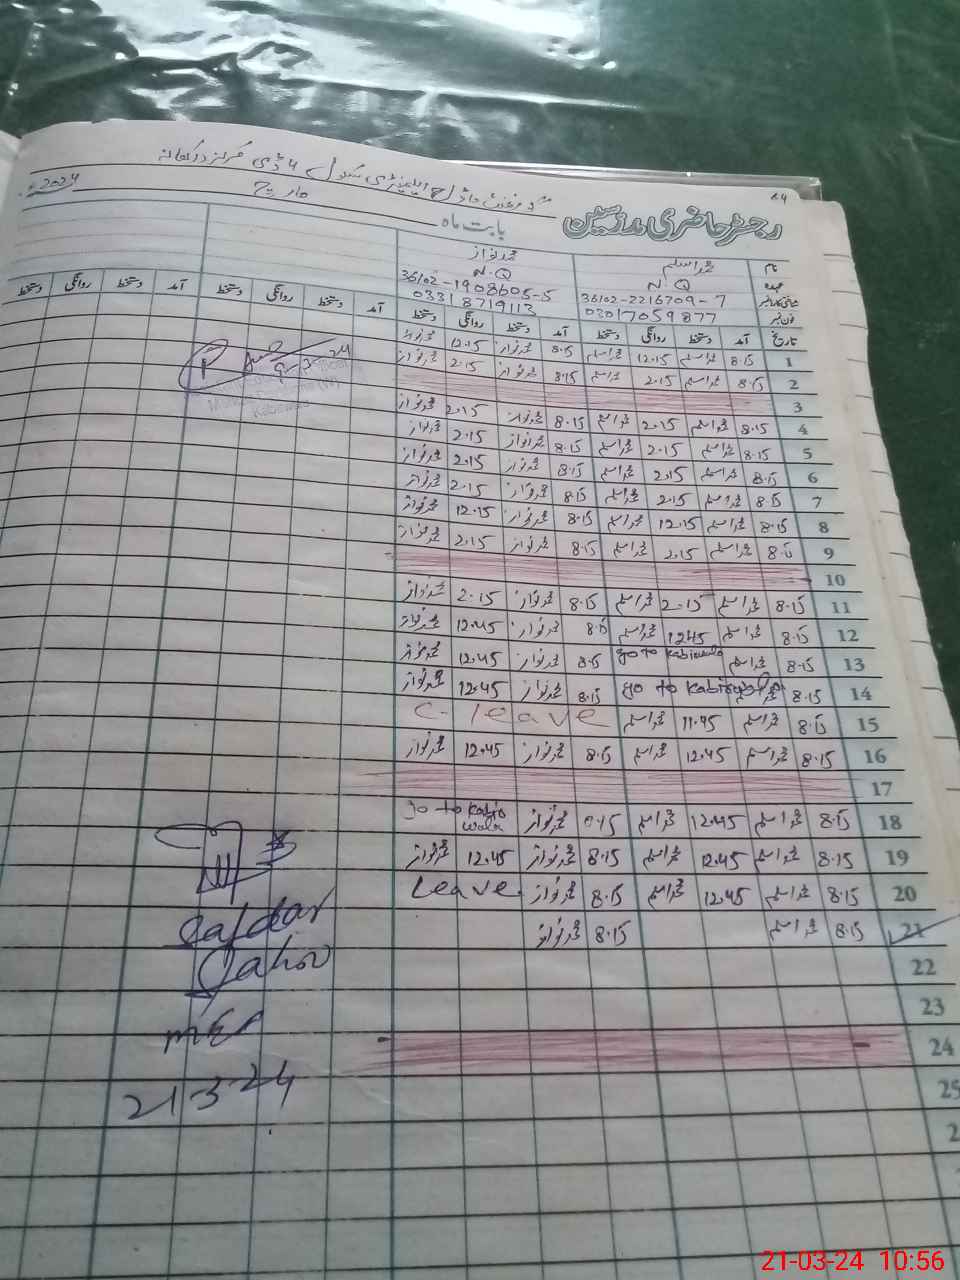 44
گورنمنٹ ماڈل ایلیمنٹری سکول 4 ڈی مرکز
رجسٹر حاضری مدرسین بابت ماہ مارچ 2024
نام محمد اسلم محمد نواز
عہدہ N.Q N.Q
شناختی کارڈ نمبر 36102-2216709-7 36102-1908605-5
فون نمبر 03017059877 03318719113
تاریخ آمد دستخط روانگی دستخط آمد دستخط روانگی دستخط آمد دستخط روانگی دستخط آمد دستخط روانگی دستخط
1 8.15 محمد اسلم 12.15 محمد اسلم 8.15 محمد نواز 12.15 محمد نواز
2 8.15 محمد اسلم 2.15 محمد اسلم 8.15 محمد نواز 2.15 محمد نواز
3
4 8.15 محمد اسلم 2.15 محمد اسلم 8.15 محمد نواز 2.15 محمد نواز
5 8.15 محمد اسلم 2.15 محمد اسلم 8.15 محمد نواز 2.15 محمد نواز
6 8.15 محمد اسلم 2.15 محمد اسلم 8.15 محمد نواز 2.15 محمد نواز
7 8.15 محمد اسلم 2.15 محمد اسلم 8.15 محمد نواز 2.15 محمد نواز
8 8.15 محمد اسلم 12.15 محمد اسلم 8.15 محمد نواز 12.15 محمد نواز
9 8.15 محمد اسلم 2.15 محمد اسلم 8.15 محمد نواز 2.15 محمد نواز
10
11 8.15 محمد اسلم 2.15 محمد اسلم 8.15 محمد نواز 2.15 محمد نواز
12 8.15 محمد اسلم 12.45 محمد اسلم 8.15 محمد نواز 12.45 محمد نواز
13 8.15 محمد اسلم go to kabirwala 8.15 محمد نواز 12.45 محمد نواز
14 8.15 محمد اسلم go to kabirwala 8.15 محمد نواز 12.45 محمد نواز
15 8.15 محمد اسلم 11.45 محمد اسلم C. leave
16 8.15 محمد اسلم 12.45 محمد اسلم 8.15 محمد نواز 12.45 محمد نواز
17
18 8.15 محمد اسلم 12.45 محمد اسلم 8.15 محمد نواز go to Kabir wala
19 8.15 محمد اسلم 12.45 محمد اسلم 8.15 محمد نواز 12.45 محمد نواز
20 8.15 محمد اسلم 12.45 محمد اسلم 8.15 محمد نواز Leave
21 8.15 محمد اسلم 8.15 محمد نواز
22
23
24
25
9-3-24
Kabirwala
Safdar
MEA
21-3-24
21-03-24 10:56